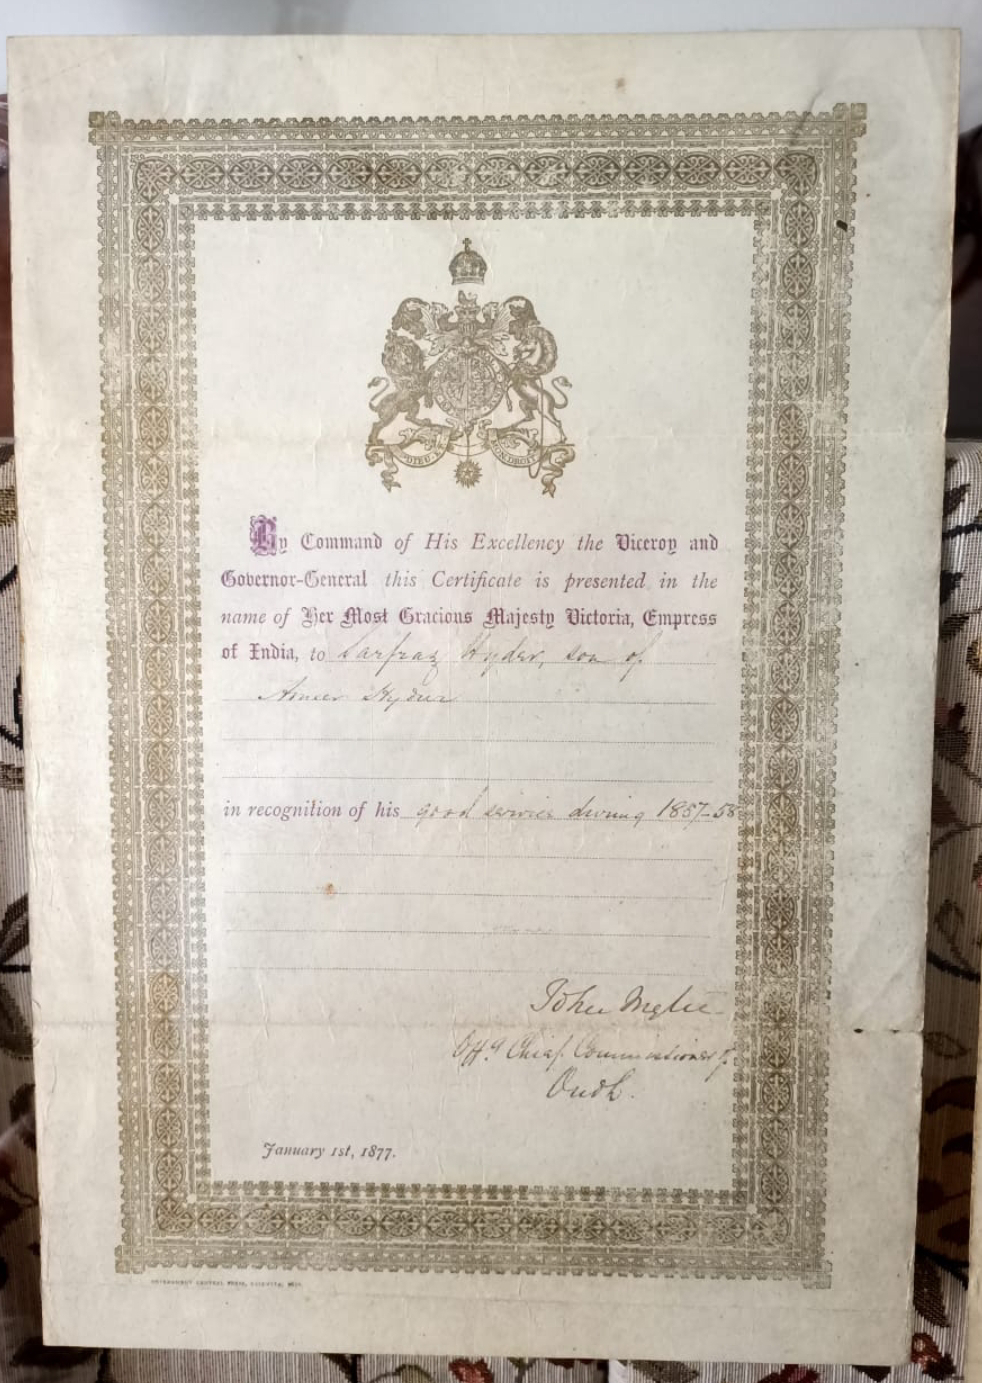 DIEU ET MON DROIT
By Command of His Excellency the Viceroy and
Governor-General this Certificate is presented in the
name of Her Most Gracious Majesty Victoria, Empress
of India, to Sarfraz Hyder, son of
Ameer Hyder
in recognition of his good service during 1857-58
John
Offg Chief Commissioner of
Oudh.
January 1st, 1877.
GOVERNMENT CENTRAL PRESS,